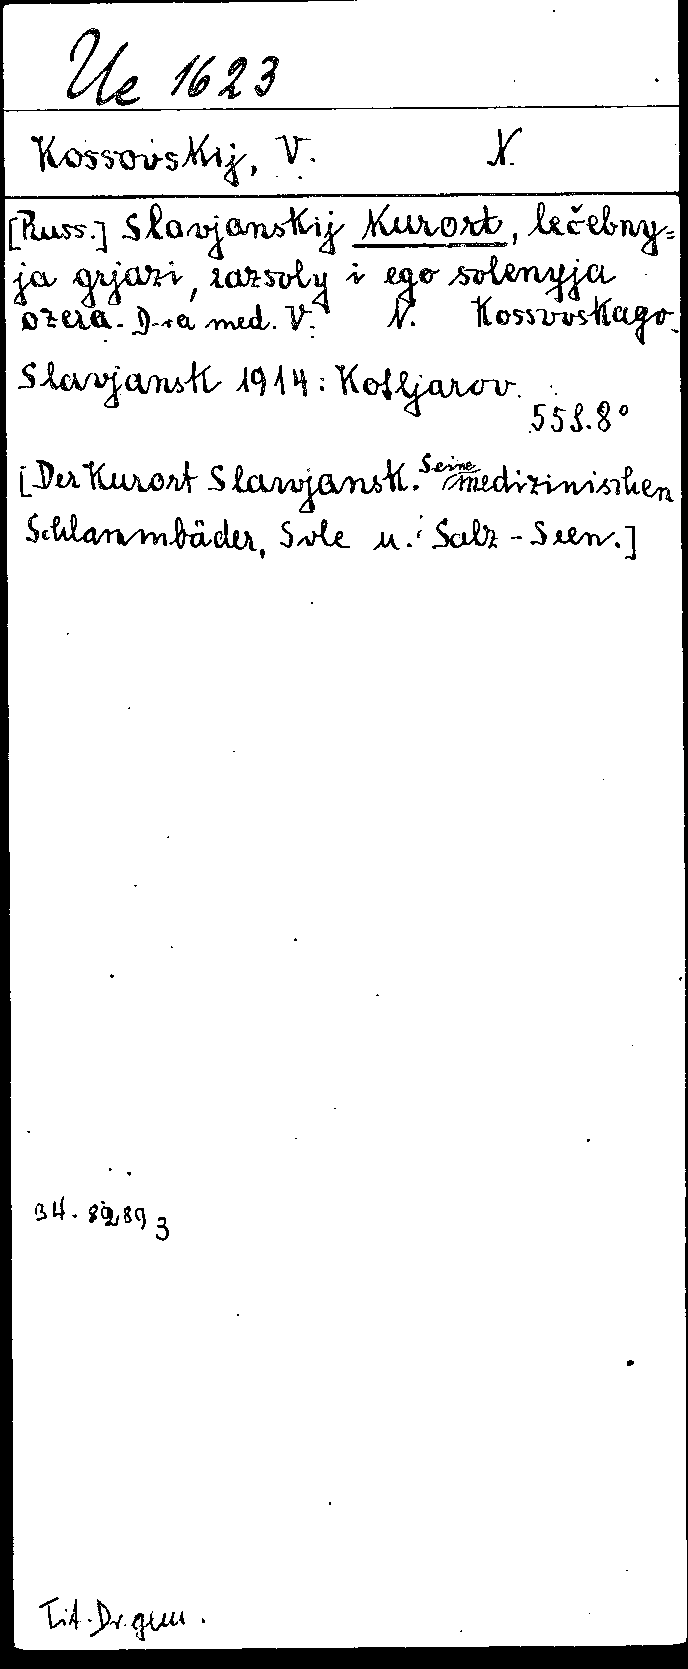 Ue 1623
Kossovskij, V. N.
[Russ.] Slavjanskij Kurort, lečebny=
ja grjazi, razsoly i ego solenyja
ozera. D-ra med. V. N. Kossovskago.
Slavjansk 1914: Kotljarov.
55 S. 8°
[Der Kurort Slavjansk. Seine medizinischen
Schlammbäder, Sole u. Salz-Seen.]
Tit. Dr. gem.